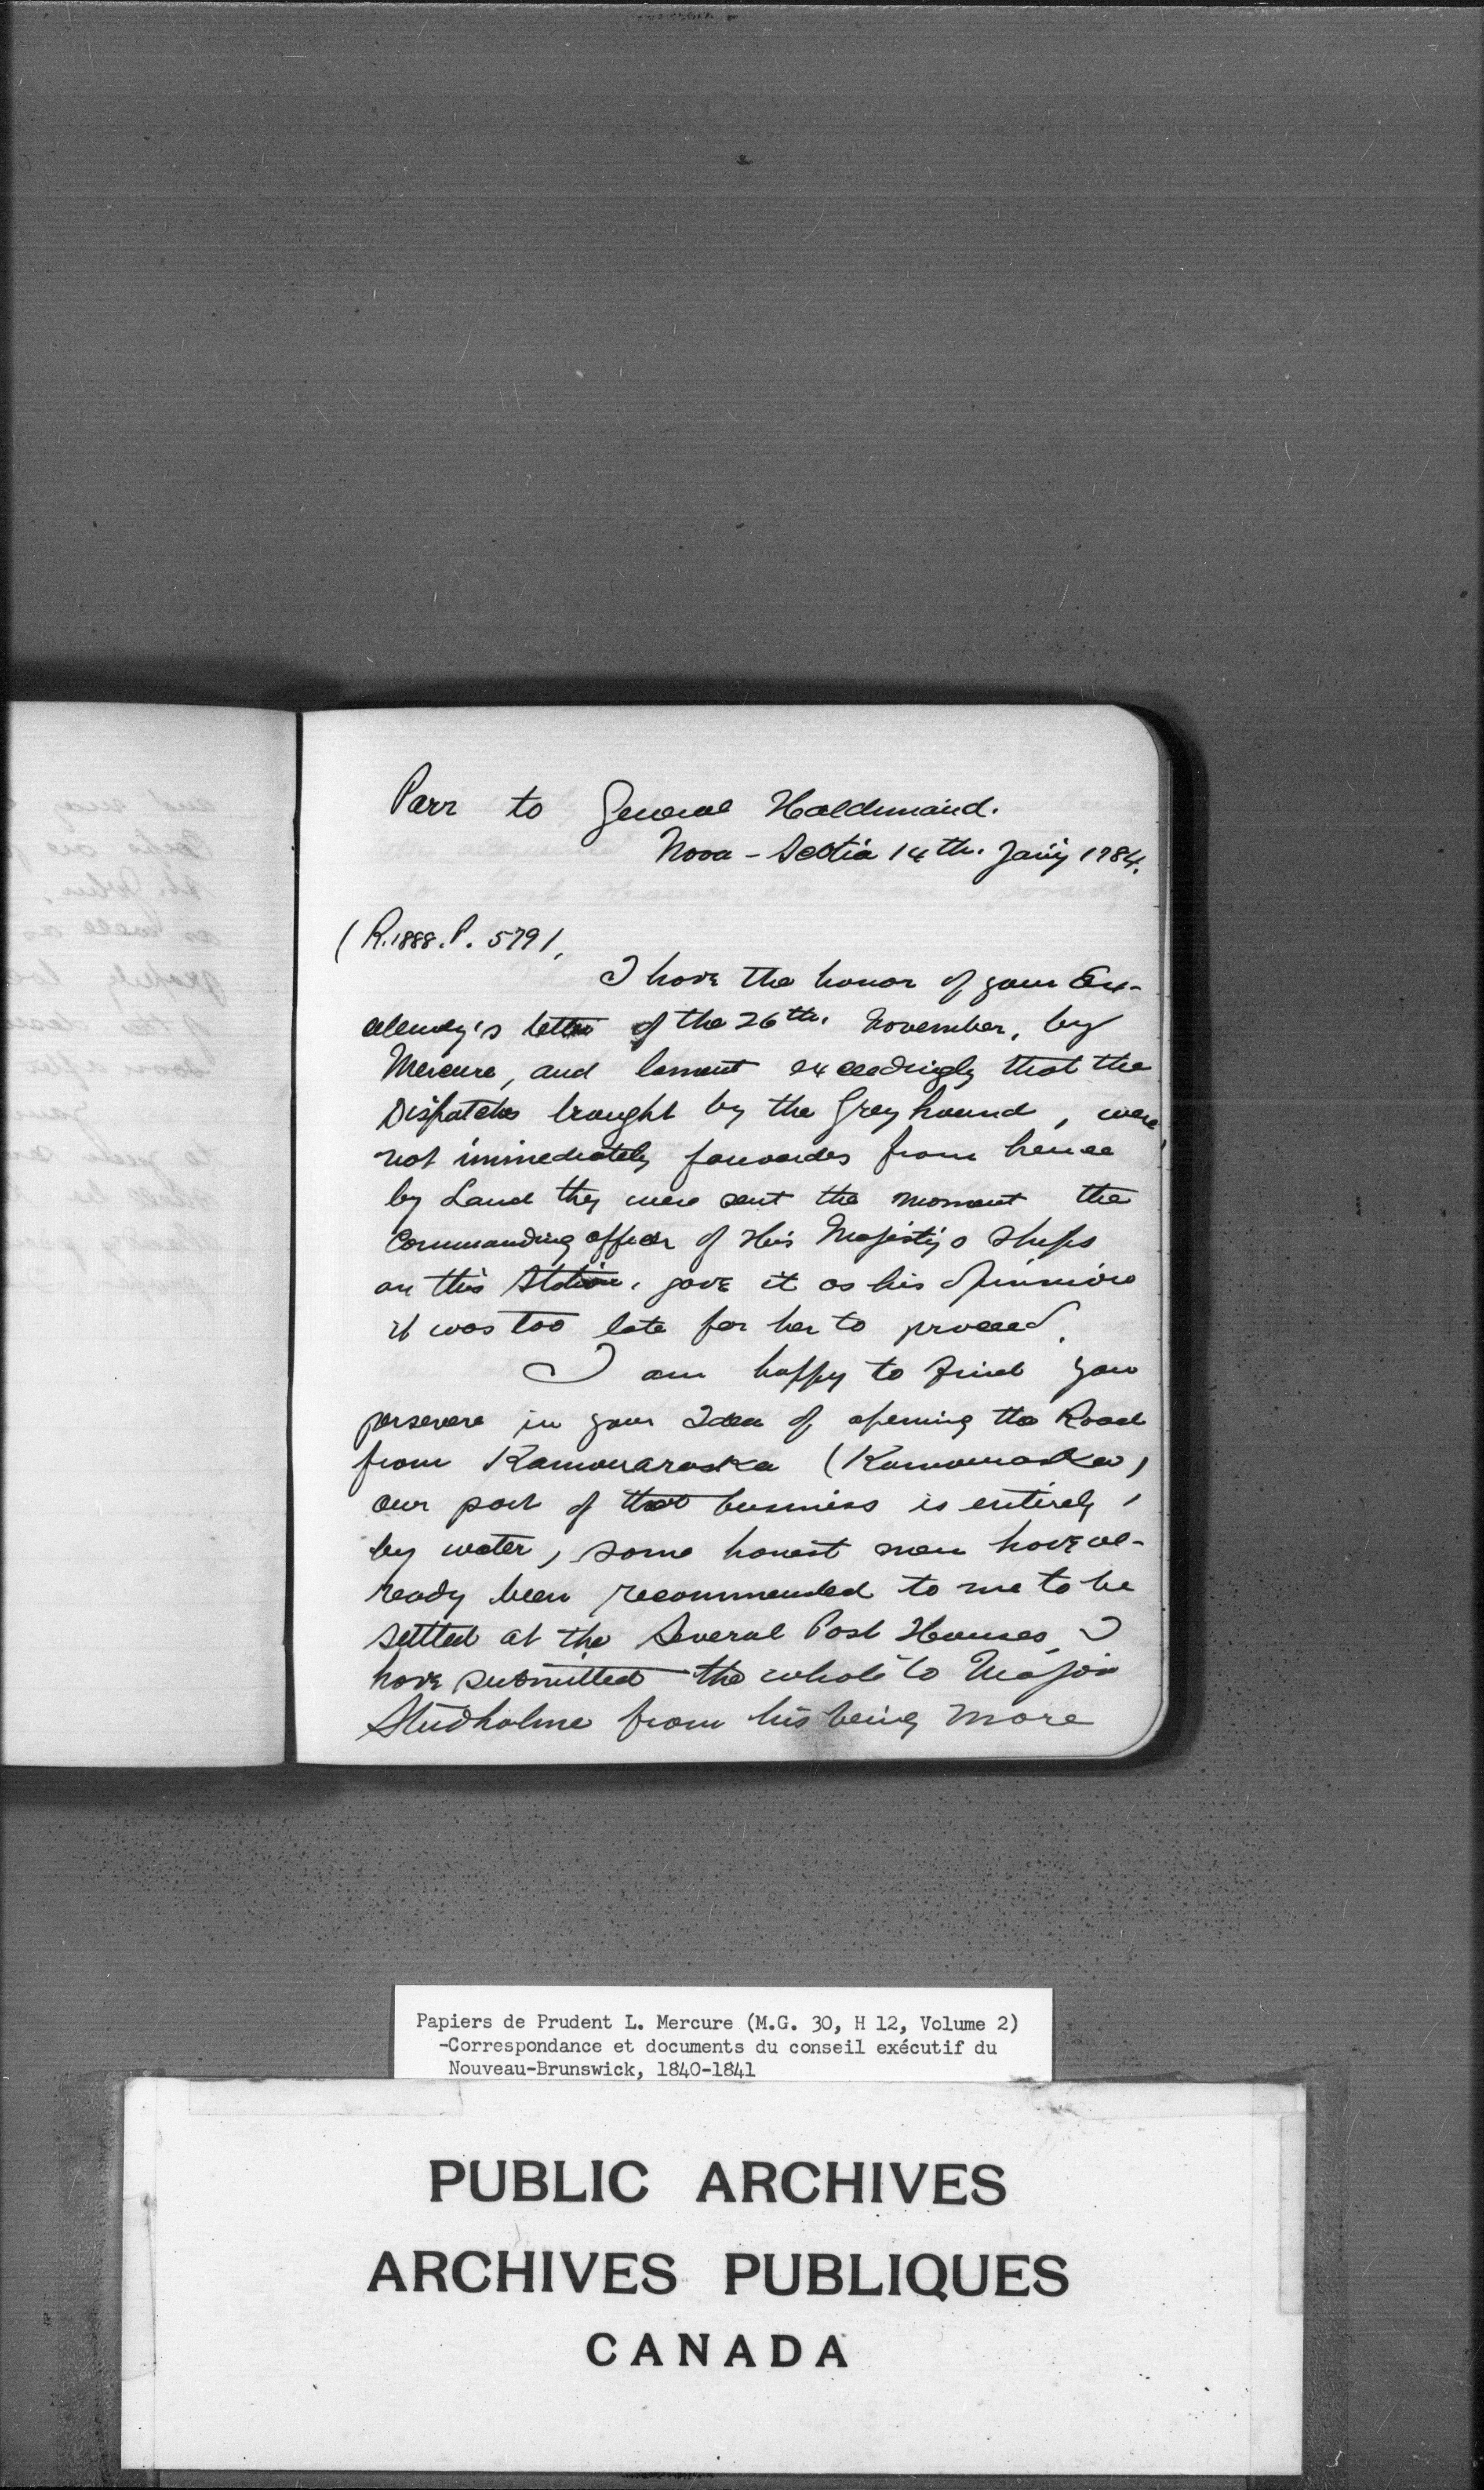 Parr to General Haldimand.
Nova-Scotia 14th. Jany 1784.
(R. 1888. P. 579).
I have the honor of your Ex-
cellency's letter of the 26th. November, by
Mercure, and lament exceedingly that the
Dispatches brought by the Grey hound, were
not immediately forwarded from hence
by Land they were sent the moment the
Commanding officer of His Majesty's Ships
on this Station, gave it as his opinnion
it was too late for her to proceed.
I am happy to find you
persevere in your Idea of opening the Road
from Kamouraraska (Kamouraska)
our part of that business is entirely
by water, some honest men have al-
ready been recommended to me to be
settled at the Several Post Houses, I
have submitted the whole to Major
Studholme from his being more
Papiers de Prudent L. Mercure (M.G. 30, H 12, Volume 2)
-Correspondance et documents du conseil exécutif du
Nouveau-Brunswick, 1840-1841
PUBLIC ARCHIVES
ARCHIVES PUBLIQUES
CANADA